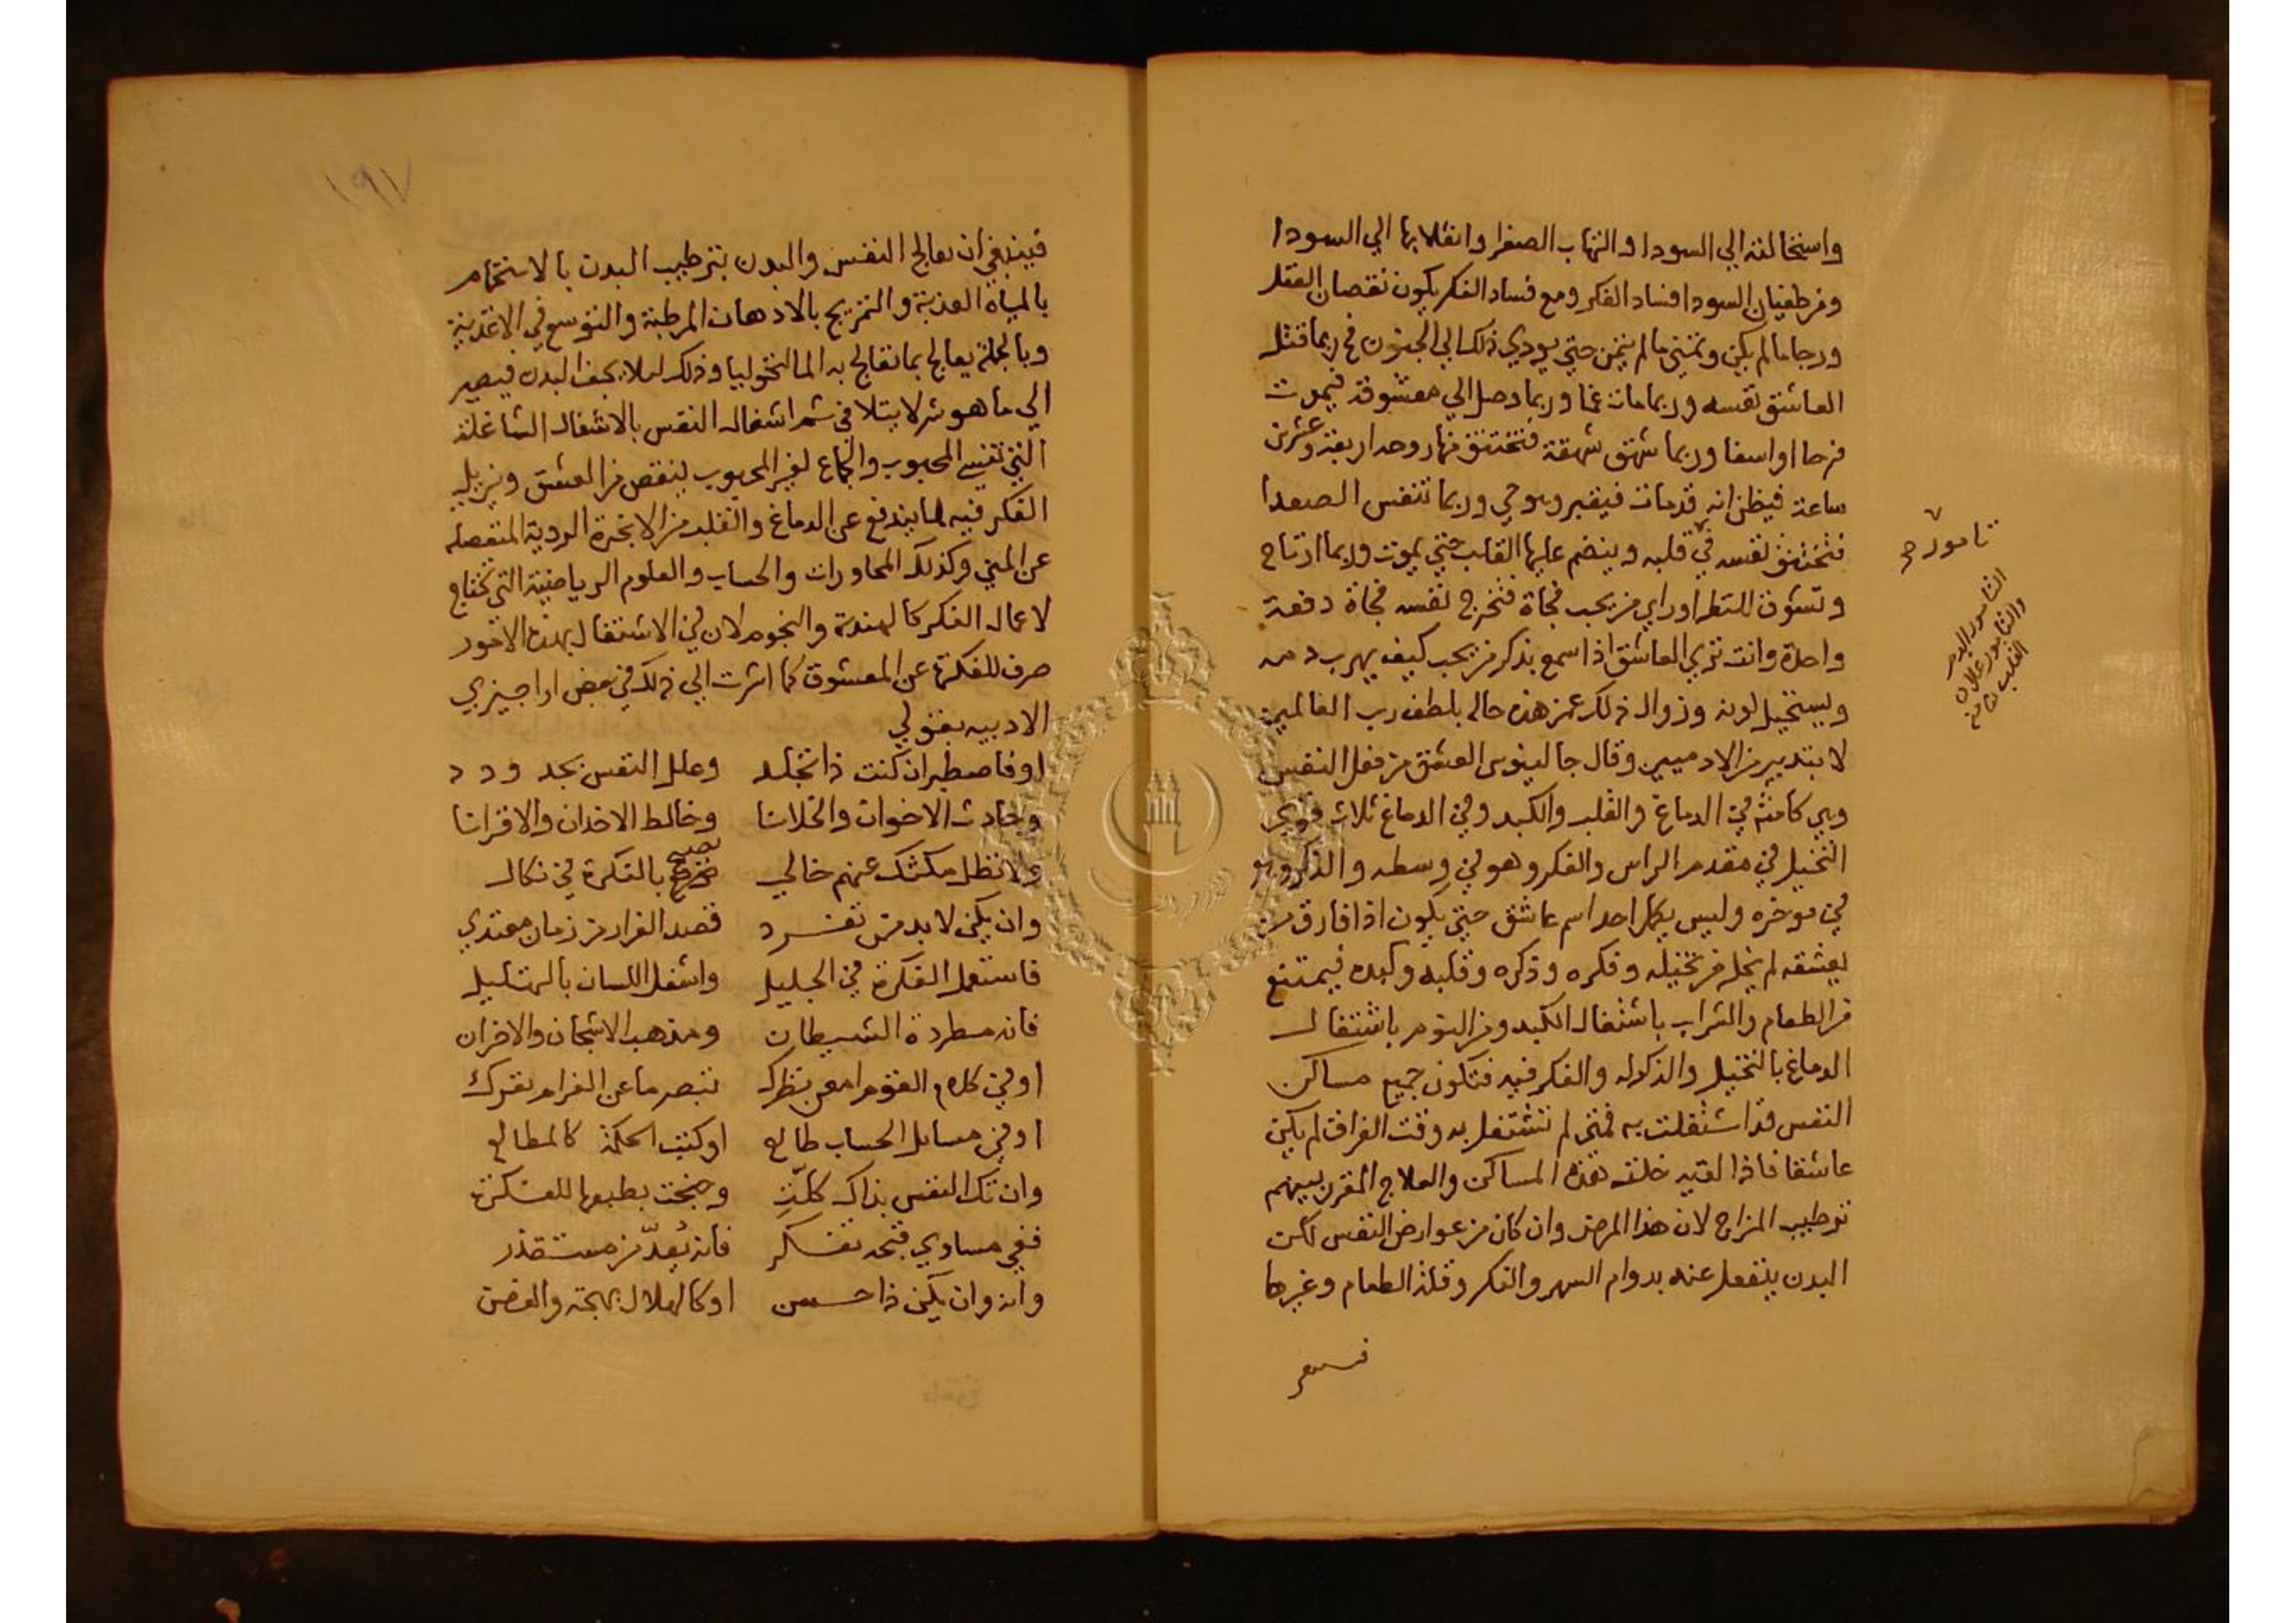 واستحالته الي السودا والتهاب الصفرا وانقلابها الي السودا
ومن طغيان السودا فساد الفكر ومع فساد الفكر يكون نقصان العقل
ورجا ما لم يكن وتمني ما لم يتمن حتي يودي ذلك الي الجنون فربما قتل
العاشق نفسه وربما مات غما وربما وصل الي معشوقه فيموت
فرحا او اسفا وربما شهق شهقة فتختنق فيها روحه اربعة وعشرين
ساعة فيظن انه قد مات فيقبر وهو حي وربما تنفس الصعدا
فتختنق نفسه في قلبه وينضم عليها القلب حتي يموت وربما ارتاح
وتشوق للنظر اوراي من يحب فجاة فتخرج نفسه فجاة دفعة
واحدة وانت تري العاشق اذا سمع بذكر من يحب كيف يهرب دمه
ويستحيل لونه وزوال ذلك عمن هذه حاله بلطف رب العالمين
لا بتدبير من الادميين وقال جالينوس العشق من فعل النفس
وهي كامنة في الدماغ والقلب والكبد وفي الدماغ ثلاث قوي
التخيل في مقدم الراس والفكر وهو في وسطه والذكر وهو
في موخره وليس يكمل احد اسم عاشق حتي يكون اذا فارق من
يعشقه لم يخل من تخيله وفكره وذكره وقلبه وكبده فيمتنع
من الطعام والشراب باشتغال الكبد ومن النوم باشتغال
الدماغ بالتخيل والذكر له والفكر فيه فتكون جميع مساكن
النفس قد اشتغلت به فمتي لم تشتغل به وقت الفراق لم يكن
عاشقا فاذا لقيه خلت هذه المساكن والعلاج المقرر بينهم
ترطيب المزاج لان هذا المرض وان كان من عوارض النفس لكن
البدن ينفعل عنه بدوام السهر والفكر وقلة الطعام وغيرها
تامور
التامور الدم
والتامور غلاف
القلب
١٩٧
فينبغي ان يعالج النفس والبدن بترطيب البدن بالاستحمام
بالمياه العذبة والتمريخ بالادهان المرطبة والتوسع في الاغذية
وبالجملة يعالج بما تعالج به المالنخوليا وذلك ليلا يجف البدن فيصير
الي ما هو شر لا يتلافي ثم اشغال النفس بالاشغال الشاغلة
التي تنسي المحبوب والجماع لغير المحبوب ينقص من العشق ويزيل
الفكر فيه لما يندفع عن الدماغ والقلب من الابخرة الردية المنفصله
عن المني وكذلك المحاورات والحساب والعلوم الرياضية التي تحتاج
لاعمال الفكر كالهندسة والنجوم لان في الاشتغال بهذه الامور
صرف للفكرة عن المعشوق كما اشرت الي ذلك في بعض اراجيزي
الادبيه بقولي
او فاصطبر ان كنت ذا تجلد وعلل النفس بجد ودد
وحادث الاخوان والخلانا وخالط الاخدان والاقرانا
ولا تظل مكثك عنهم خالي تصبح بالفكرة في نكال
وان يكن لا بد من تفرد قصد الفرار من زمان معتدي
فاستعمل الفكرة في الجليل واشغل اللسان بالتهليل
فانه مطردة الشيطان ومذهب الاشجان والاحزان
او في كلام القوم امعن نظرك تبصر ما عن الغرام يقرك
او في مسايل الحساب طالع او كتب الحكمة كالمطالع
وان تك النفس بذاك كلّت وجنحت بطبعها للفكرة
ففي مساوي قبحه تفكر فانه يُعدّ من مستقذر
وانه وان يكن ذا حسن او كالهلال بهجة والغصن